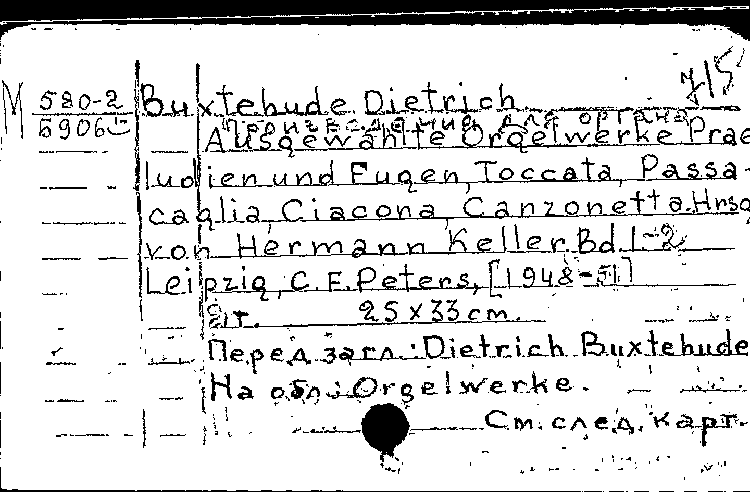 715
М 580-2 Buxtehude Dietrich
5906 Произведения для органа
Ausgewählte Orgelwerke Prae
ludien und Fugen, Toccata, Passa-
caglia, Ciacona, Canzonetta. Hrsg
von Hermann Keller. Bd. 1-2
Leipzig, C. F. Peters, [1948-51]
2 т. 25 x 33 cm.
Перед загл.: Dietrich Buxtehude
На обл.: Orgelwerke.
См. след. карт.